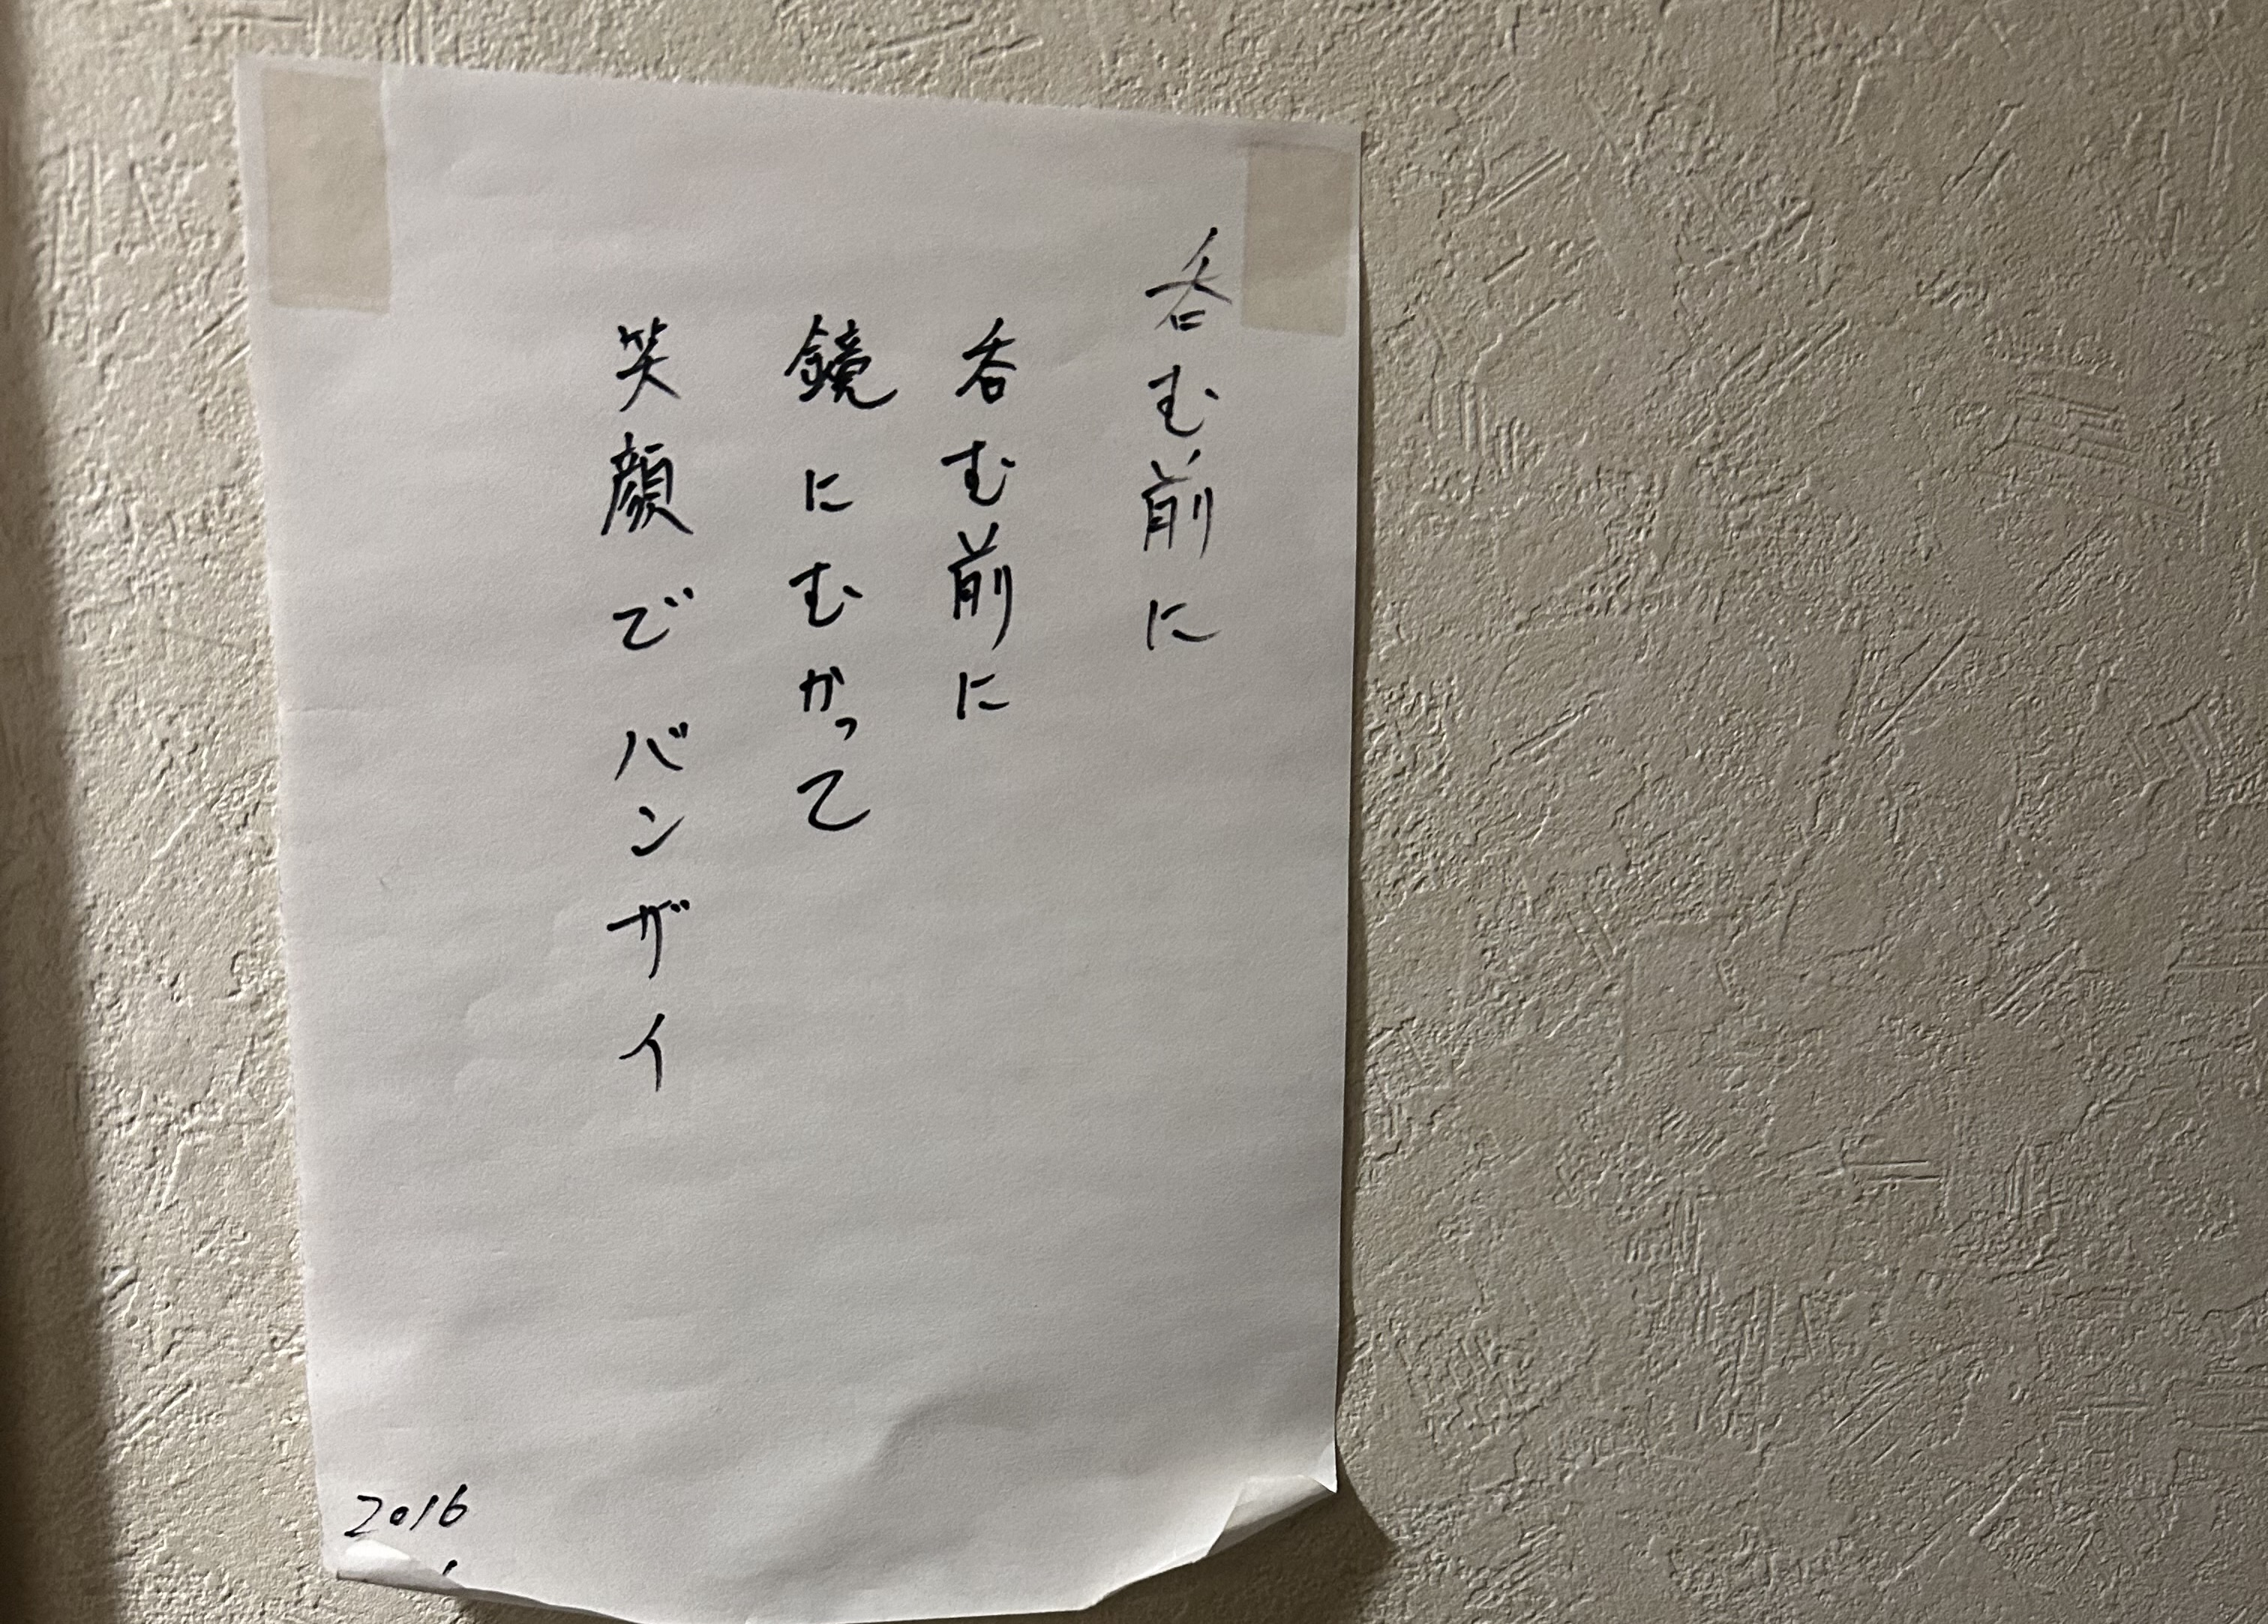 呑む前に
呑む前に
鏡にむかって
笑顔でバンザイ
2016